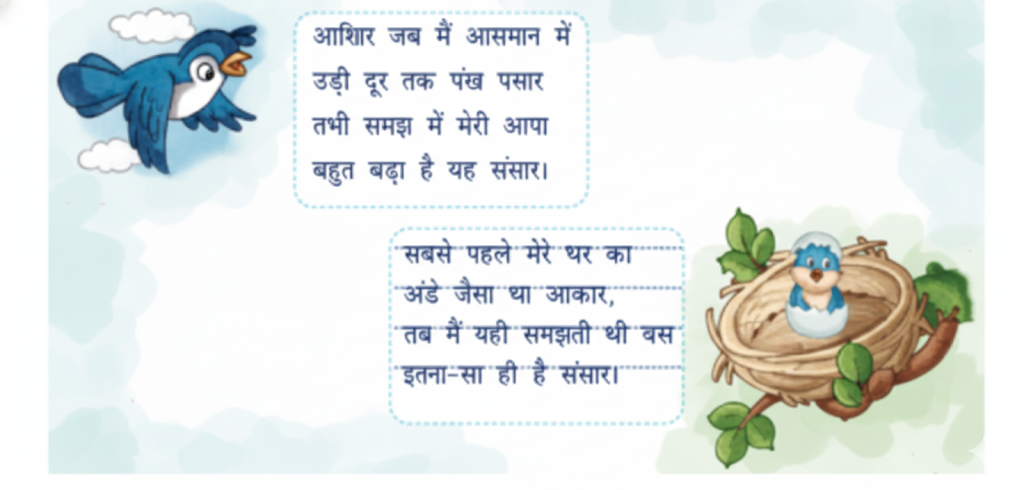 आशिार जब मैं आसमान में
उड़ी दूर तक पंख पसार
तभी समझ में मेरी आपा
बहुत बढ़ा है यह संसार।
सबसे पहले मेरे थर का
अंडे जैसा था आकार,
तब मैं यही समझती थी वस
इतना-सा ही है संसार।